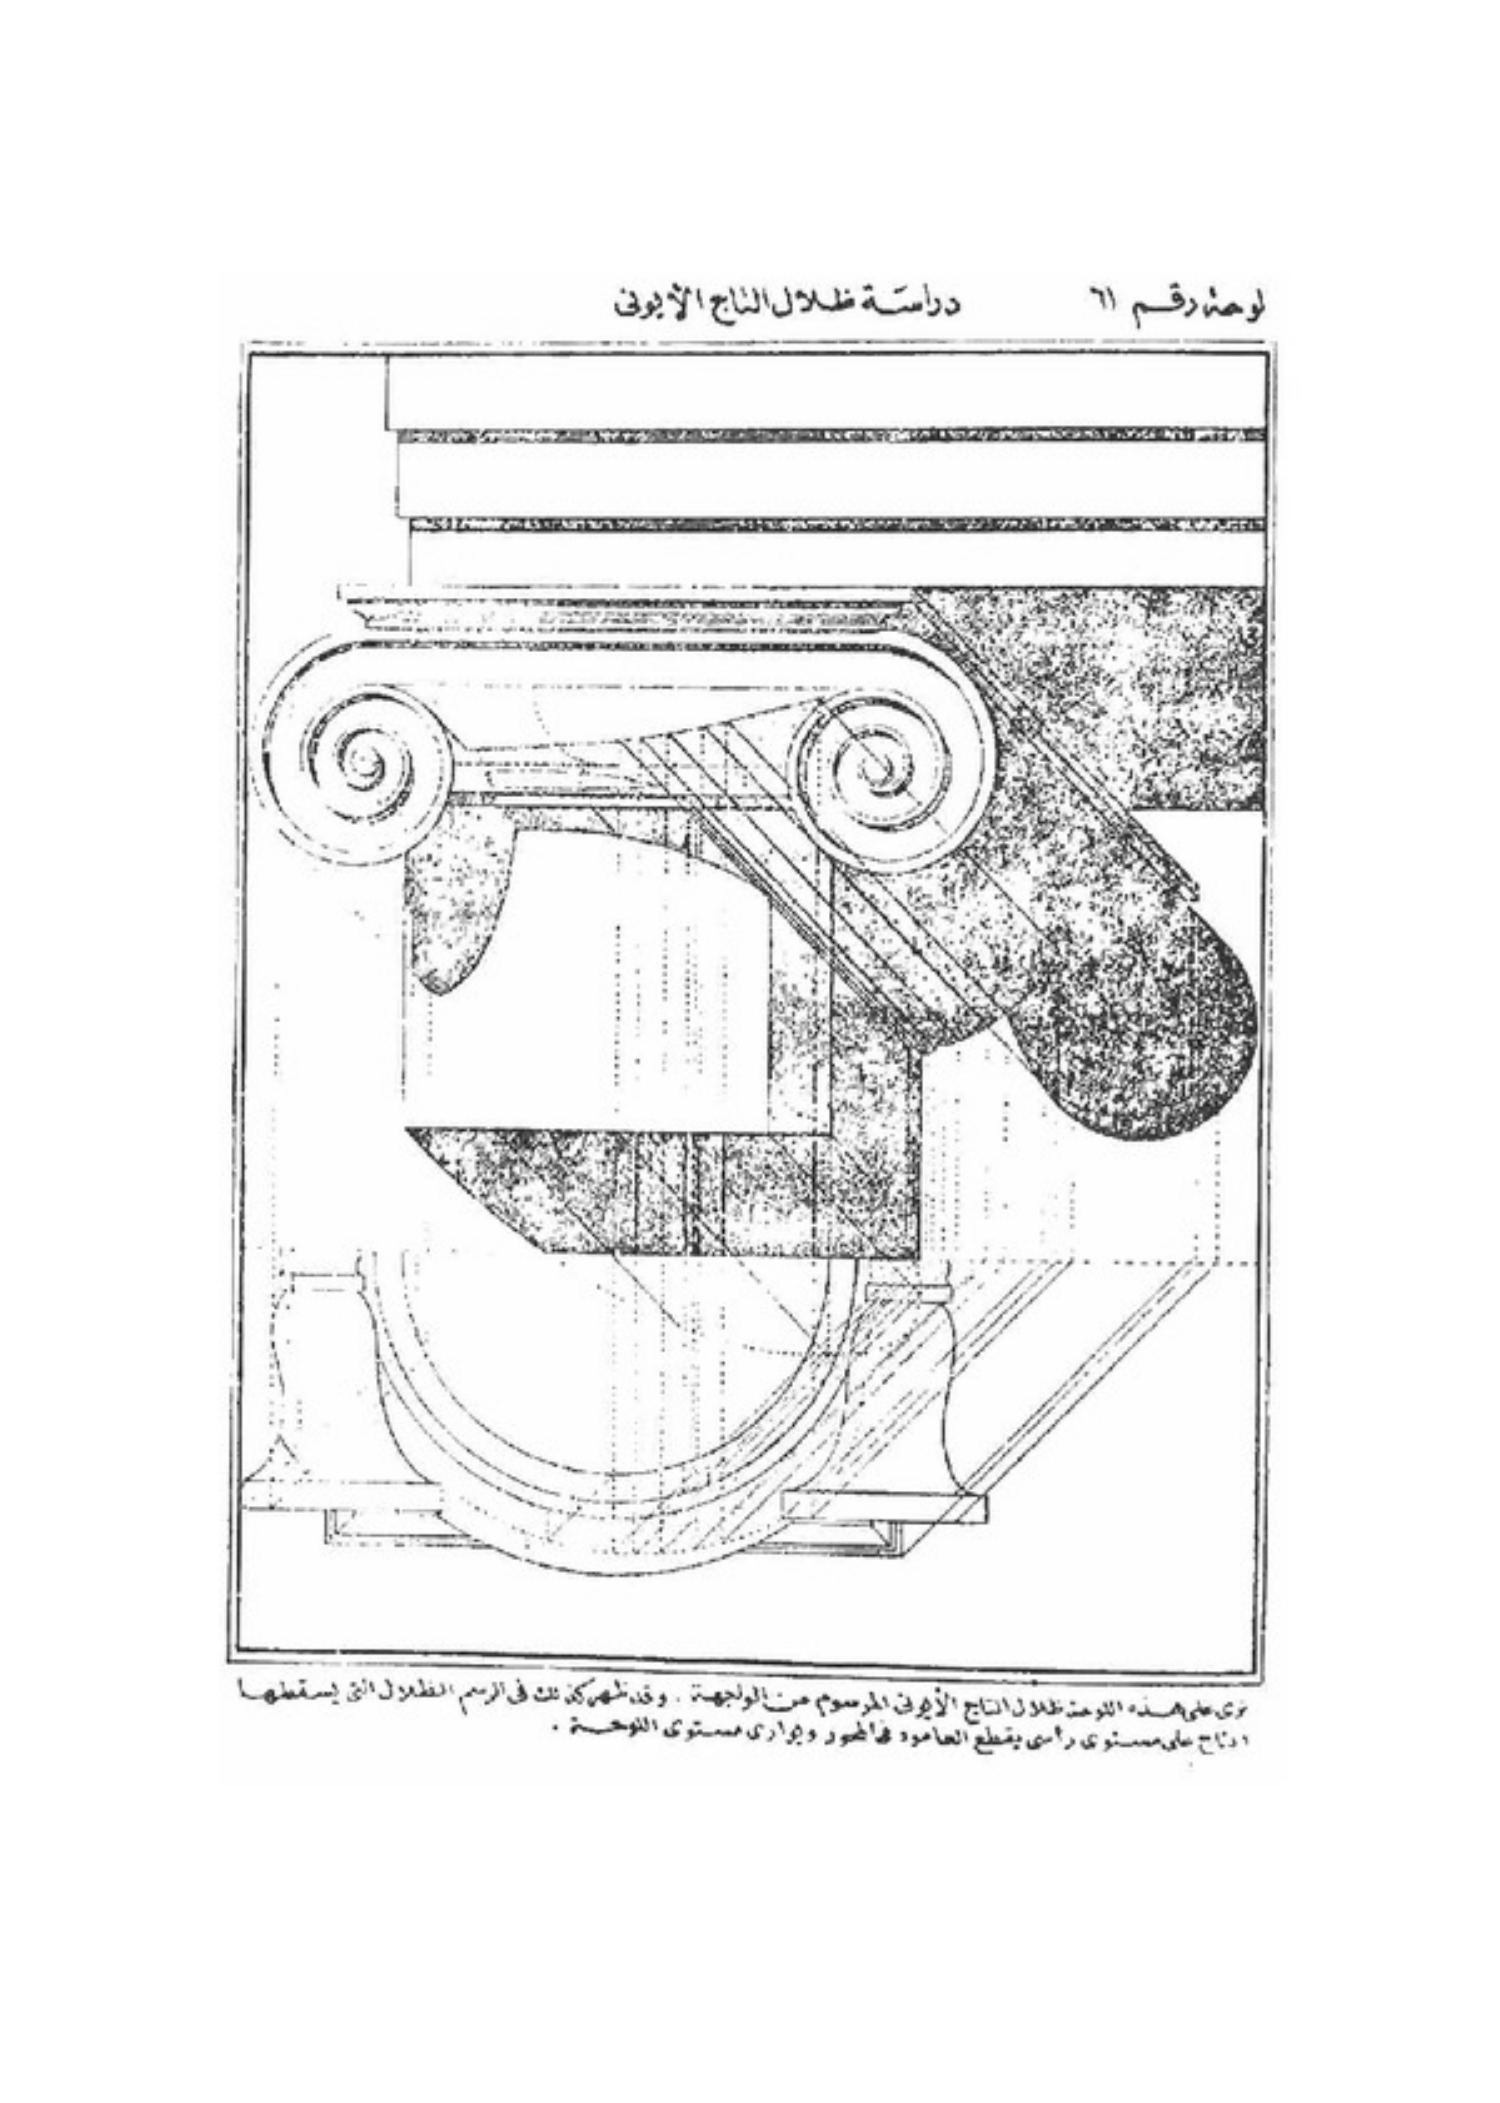 لوحة رقم ٦١ دراسة ظلال التاج الأيونى
نرى على هذه اللوحة ظلال التاج الأيونى المرسوم من الواجهة . وقد ظهر كذلك فى الرسم الظلال التى يسقطها
التاج على مستوى رأسى يقطع العامود فى المحور ويوازى مستوى اللوحة .